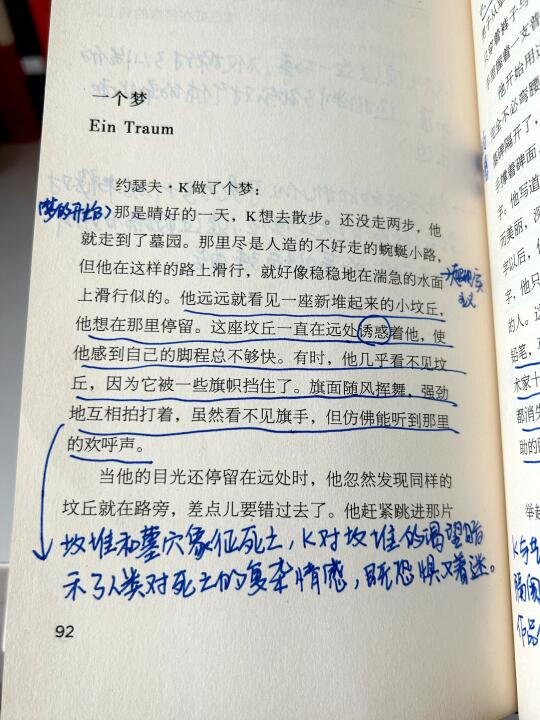 一个梦
Ein Traum
约瑟夫·K做了个梦：
(梦的开始)
那是晴好的一天，K想去散步。还没走两步，他
就走到了墓园。那里尽是人造的不好走的蜿蜒小路，
但他在这样的路上滑行，就好像稳稳地在湍急的水面
→超现实
主义
上滑行似的。他远远就看见一座新堆起来的小坟丘，
他想在那里停留。这座坟丘一直在远处诱惑着他，使
他感到自己的脚程总不够快。有时，他几乎看不见坟
丘，因为它被一些旗帜挡住了。旗面随风挥舞，强劲
地互相拍打着，虽然看不见旗手，但仿佛能听到那里
的欢呼声。
当他的目光还停留在远处时，他忽然发现同样的
坟丘就在路旁，差点儿要错过去了。他赶紧跳进那片
坟堆和墓穴象征死亡，K对坟堆的渴望暗
示了人类对死亡的复杂情感，既恐惧又着迷。
92
穿着裤子
他开始用
完全不必弯腰
墓碑隔开了，
手撑着碑面，
字。他写道
而美丽，深
字以后，
字，他只
的人。这
铅笔，
术家十
都消失
助的
举起
K与
作品